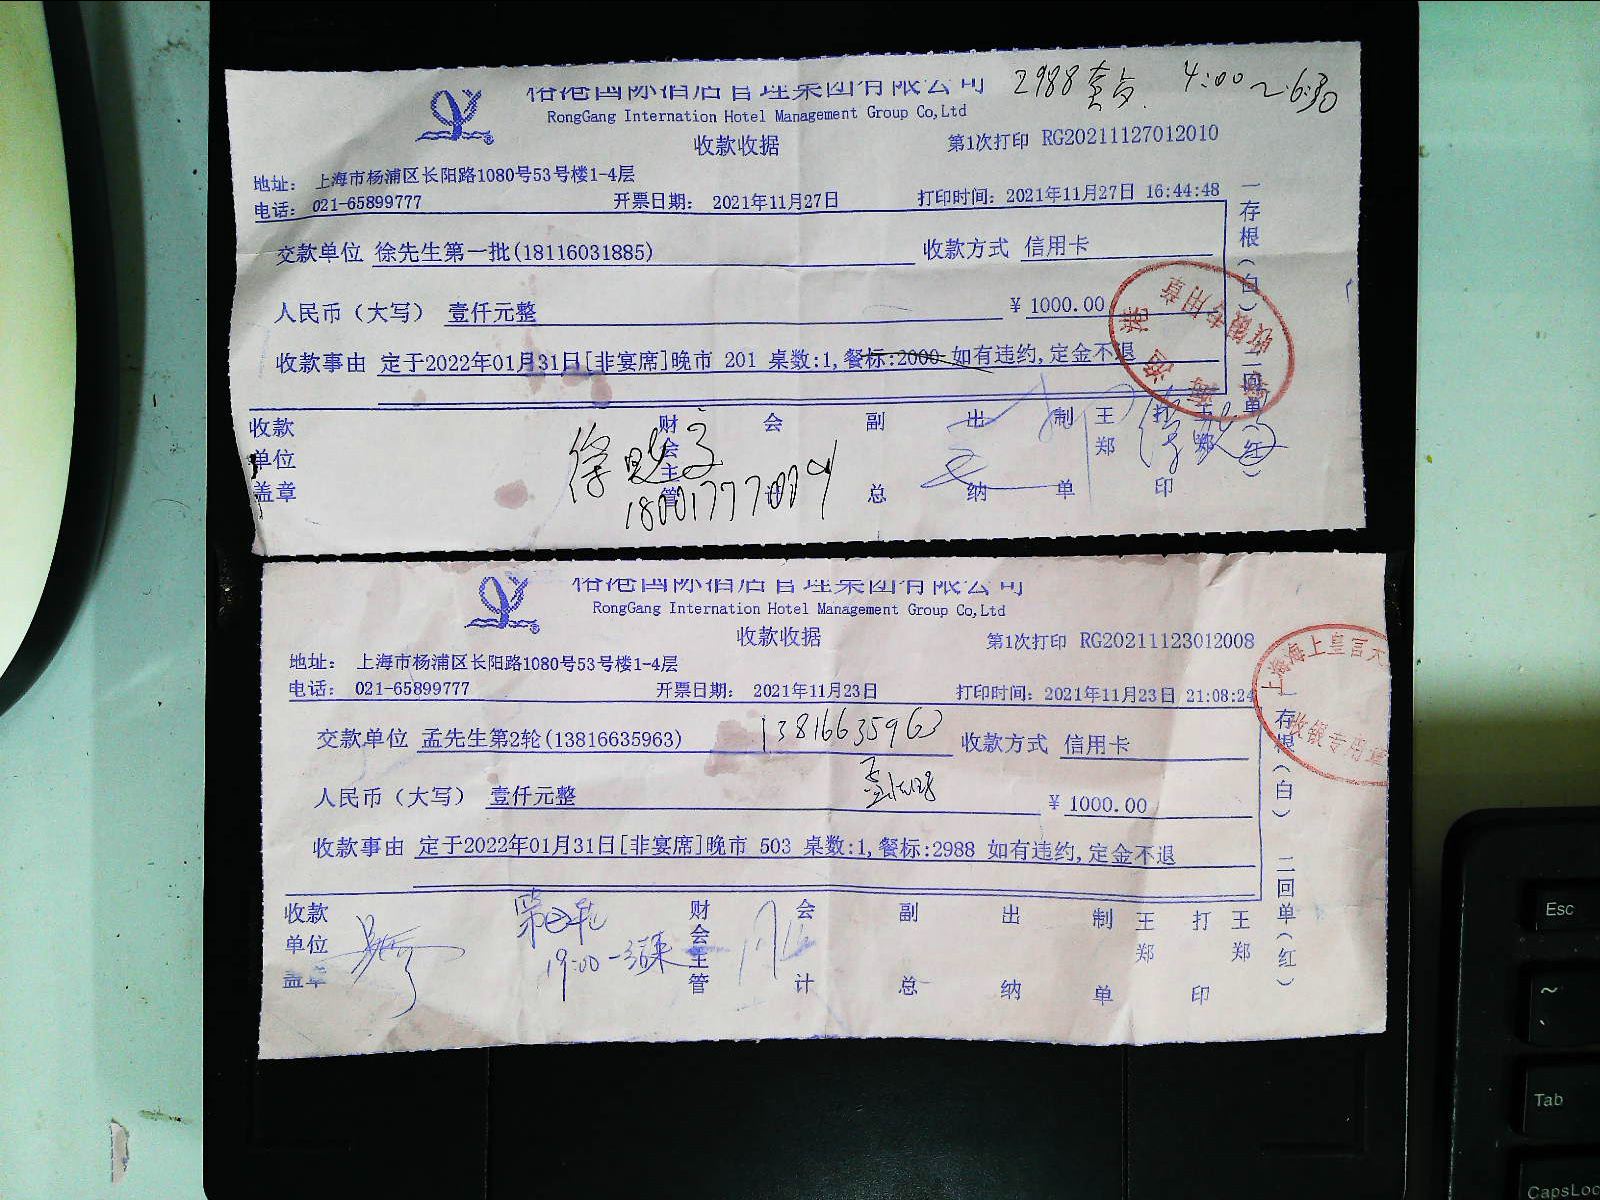 榕港国际酒店管理集团有限公司 2988套 4:00~6:30
RongGang Internation Hotel Management Group Co,Ltd
收款收据 第1次打印 RG20211127012010
地址： 上海市杨浦区长阳路1080号53号楼1-4层
电话： 021-65899777 开票日期： 2021年11月27日 打印时间：2021年11月27日 16:44:48
交款单位 徐先生第一批(18116031885) 收款方式 信用卡
人民币（大写） 壹仟元整 ￥ 1000.00
收款事由 定于2022年01月31日[非宴席]晚市 201 桌数:1,餐标:2000 如有违约,定金不退
收款单位盖章 财会主管 会计 副总 出纳 制单 王郑 打印 王郑
18001777009
一存根（白） 二回单（红）
收银专用章
榕港国际酒店管理集团有限公司
RongGang Internation Hotel Management Group Co,Ltd
收款收据 第1次打印 RG20211123012008
地址： 上海市杨浦区长阳路1080号53号楼1-4层
电话： 021-65899777 开票日期： 2021年11月23日 打印时间：2021年11月23日 21:08:24
交款单位 孟先生第2轮(13816635963) 13816635963 收款方式 信用卡
人民币（大写） 壹仟元整 ￥ 1000.00
收款事由 定于2022年01月31日[非宴席]晚市 503 桌数:1,餐标:2988 如有违约,定金不退
收款单位盖章 财会主管 会计 副总 出纳 制单 王郑 打印 王郑
第二轮
19:00-结束
一存根（白） 二回单（红）
上海海上皇宫大
收银专用章
Esc
~
Tab
CapsLoc